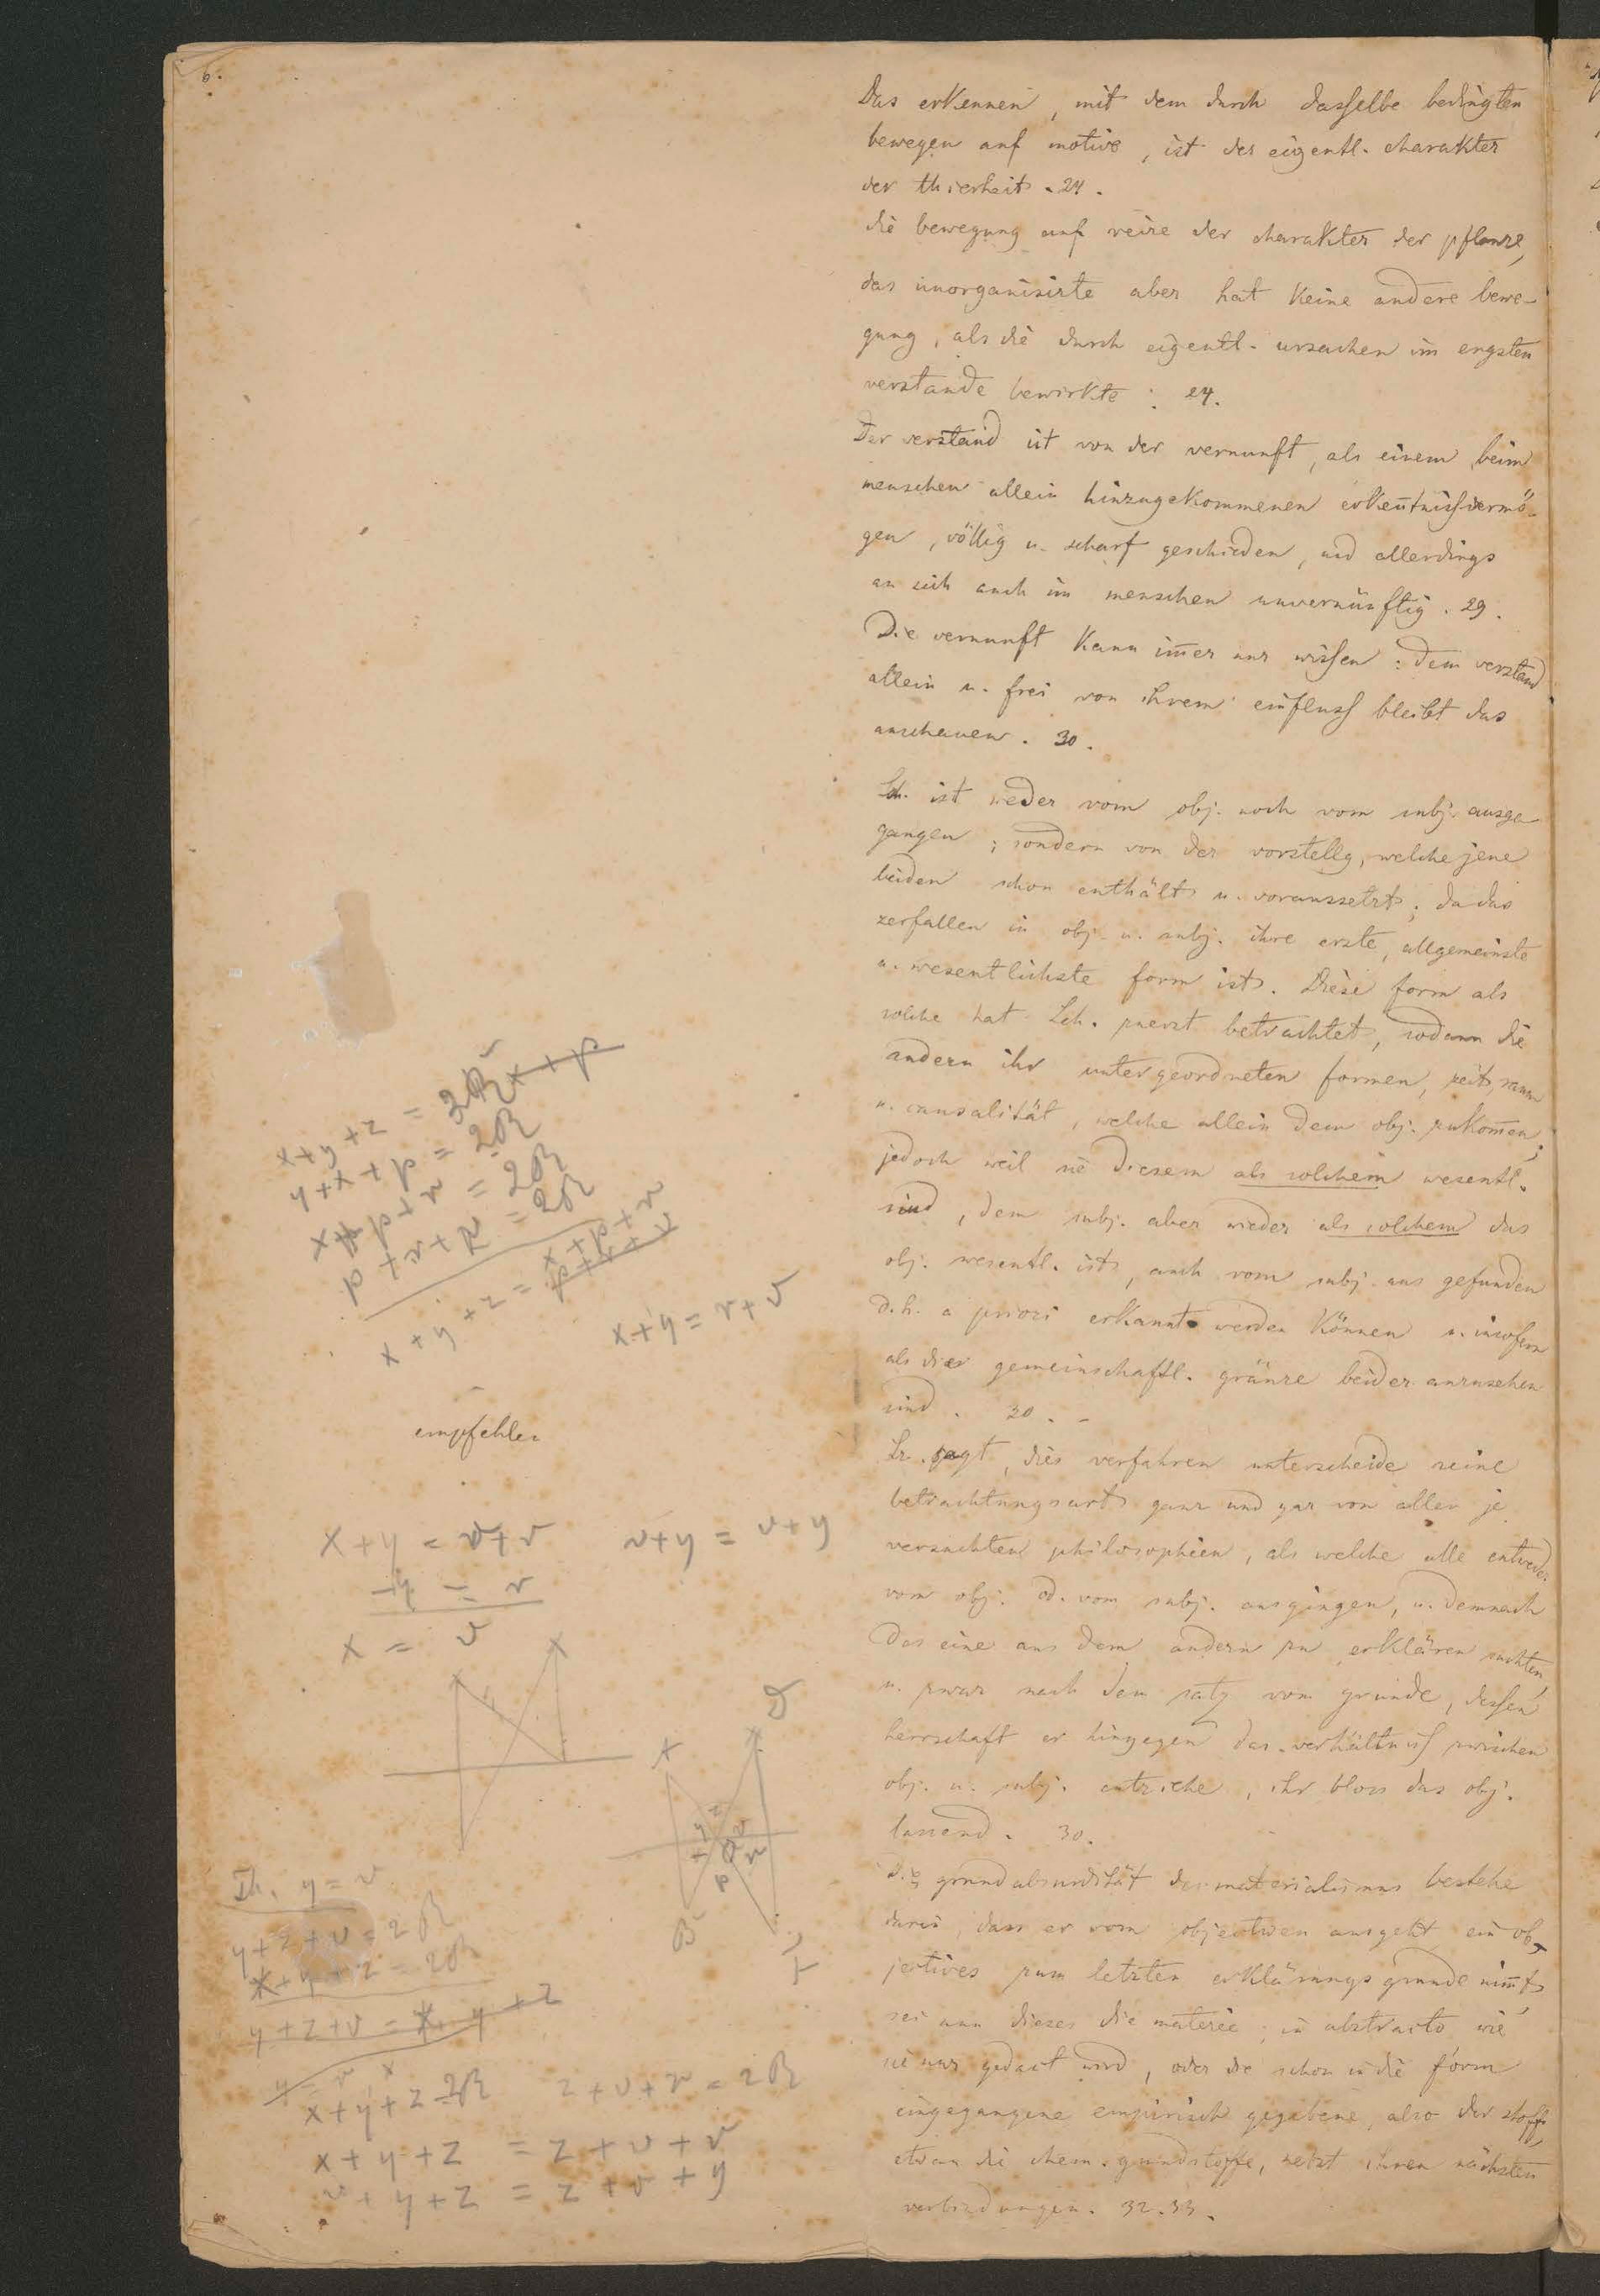 6.
Das erkennen, mit dem durch dasselbe bedingten
bewegen auf motive, ist der eigentl. charakter
der thierheit. 24.
die bewegung auf reize der charakter der pflanze,
das unorganisirte aber hat keine andere bewe-
gung, als die durch eigentl. ursachen im engsten
verstande bewirkte: 24.
Der verstand ist von der vernunft, als einem beim
menschen allein hinzugekommenen erkeñtnißvermö-
gen, völlig u. scharf geschieden, und allerdings
an sich auch im menschen unvernünftig. 29.
Die vernunft kann im̄er nur wissen: dem verstand
allein u. frei von ihrem einfluß bleibt das
anschauen. 30.
Sch. ist weder vom obj. noch vom subj. ausge-
gangen; sondern von der vorstellg, welche jene
beiden schon enthält u. voraussetzt; da das
zerfallen in obj. u. subj. ihre erste, allgemeinste
u. wesentlichste form ist. Diese form als
solche hat Sch. zuerst betrachtet, sodann die
andern ihr untergeordneten formen, zeit, raum
u. causalität, welche allein dem obj. zukom̄en;
jedoch weil sie diesem als solchem wesentl.
sind, dem subj. aber wieder als solchem das
obj. wesentl. ist, auch vom subj. aus gefunden
d.h. a priori erkannt werden können u. insofern
als die gemeinschaftl. gränze beider anzusehen
sind. 30.-
Er sagt, dies verfahren unterscheide seine
betrachtungsart ganz und gar von allen je
versuchten philosophien, als welche alle entweder
vom obj. od. vom subj. ausgingen, u. demnach
das eine aus dem andern zu erklären suchten,
u. zwar nach dem satz vom grunde, dessen
herrschaft er hingegen das verhältniß zwischen
obj. u. subj. entziehe, ihr bloss das obj.
lassend. 30.
Die grundabsurdität des materialismus bestehe
darin, dass er vom objectiven ausgeht ein ob-
jectives zum letzten erklärungsgrunde nim̄t,
sei nun dieses die materie, in abstracto wie
sie nur gedacht wird, oder die schon in die form
eingegangene empirisch gegebene, also der stoff,
etwa die chem. grundstoffe, nebst ihren nächsten
verbindungen. 32.33.
x+y+z = 2R x+p
y+x+p = 2R
x+p+r = 2R
p+r+v = 2R
x+y+z = x+p+r
x+y = r+v
empfehlen
x+y = v+r
v+y = v+y
-y = r
x = v
D
z
y v
x r
p
B
F
Th. y = r
y+z+v = 2R
x+y+z = 2R
y+z+v = x+y+z
y = r
x+y+z = 2R
z+v+r = 2R
x+y+z = z+v+r
v+y+z = z+v+y